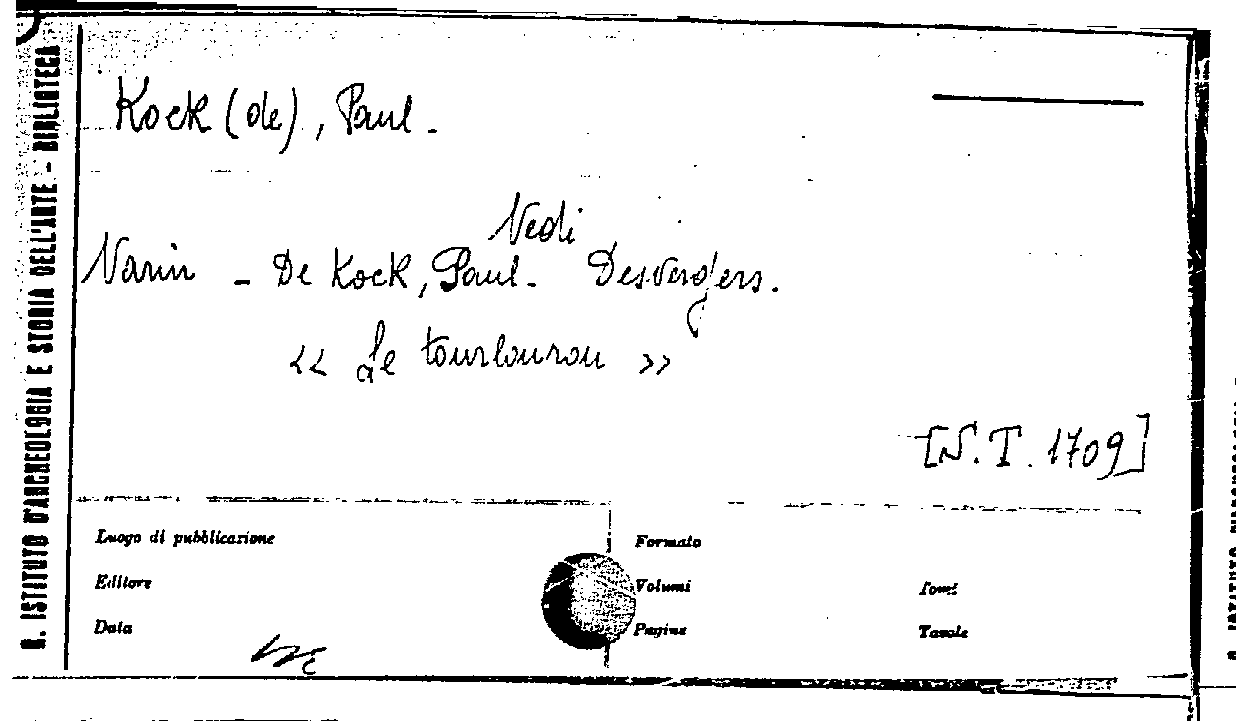 R. ISTITUTO D'ARCHEOLOGIA E STORIA DELL'ARTE - BIBLIOTECA
Kock (de), Paul.
Vedi
Varin - De Kock, Paul. Desvergers.
« Le tourlourou »
[N.T. 1709]
Luogo di pubblicazione
Formato
Editore
Volumi
Tomi
Data
Pagine
Tavole